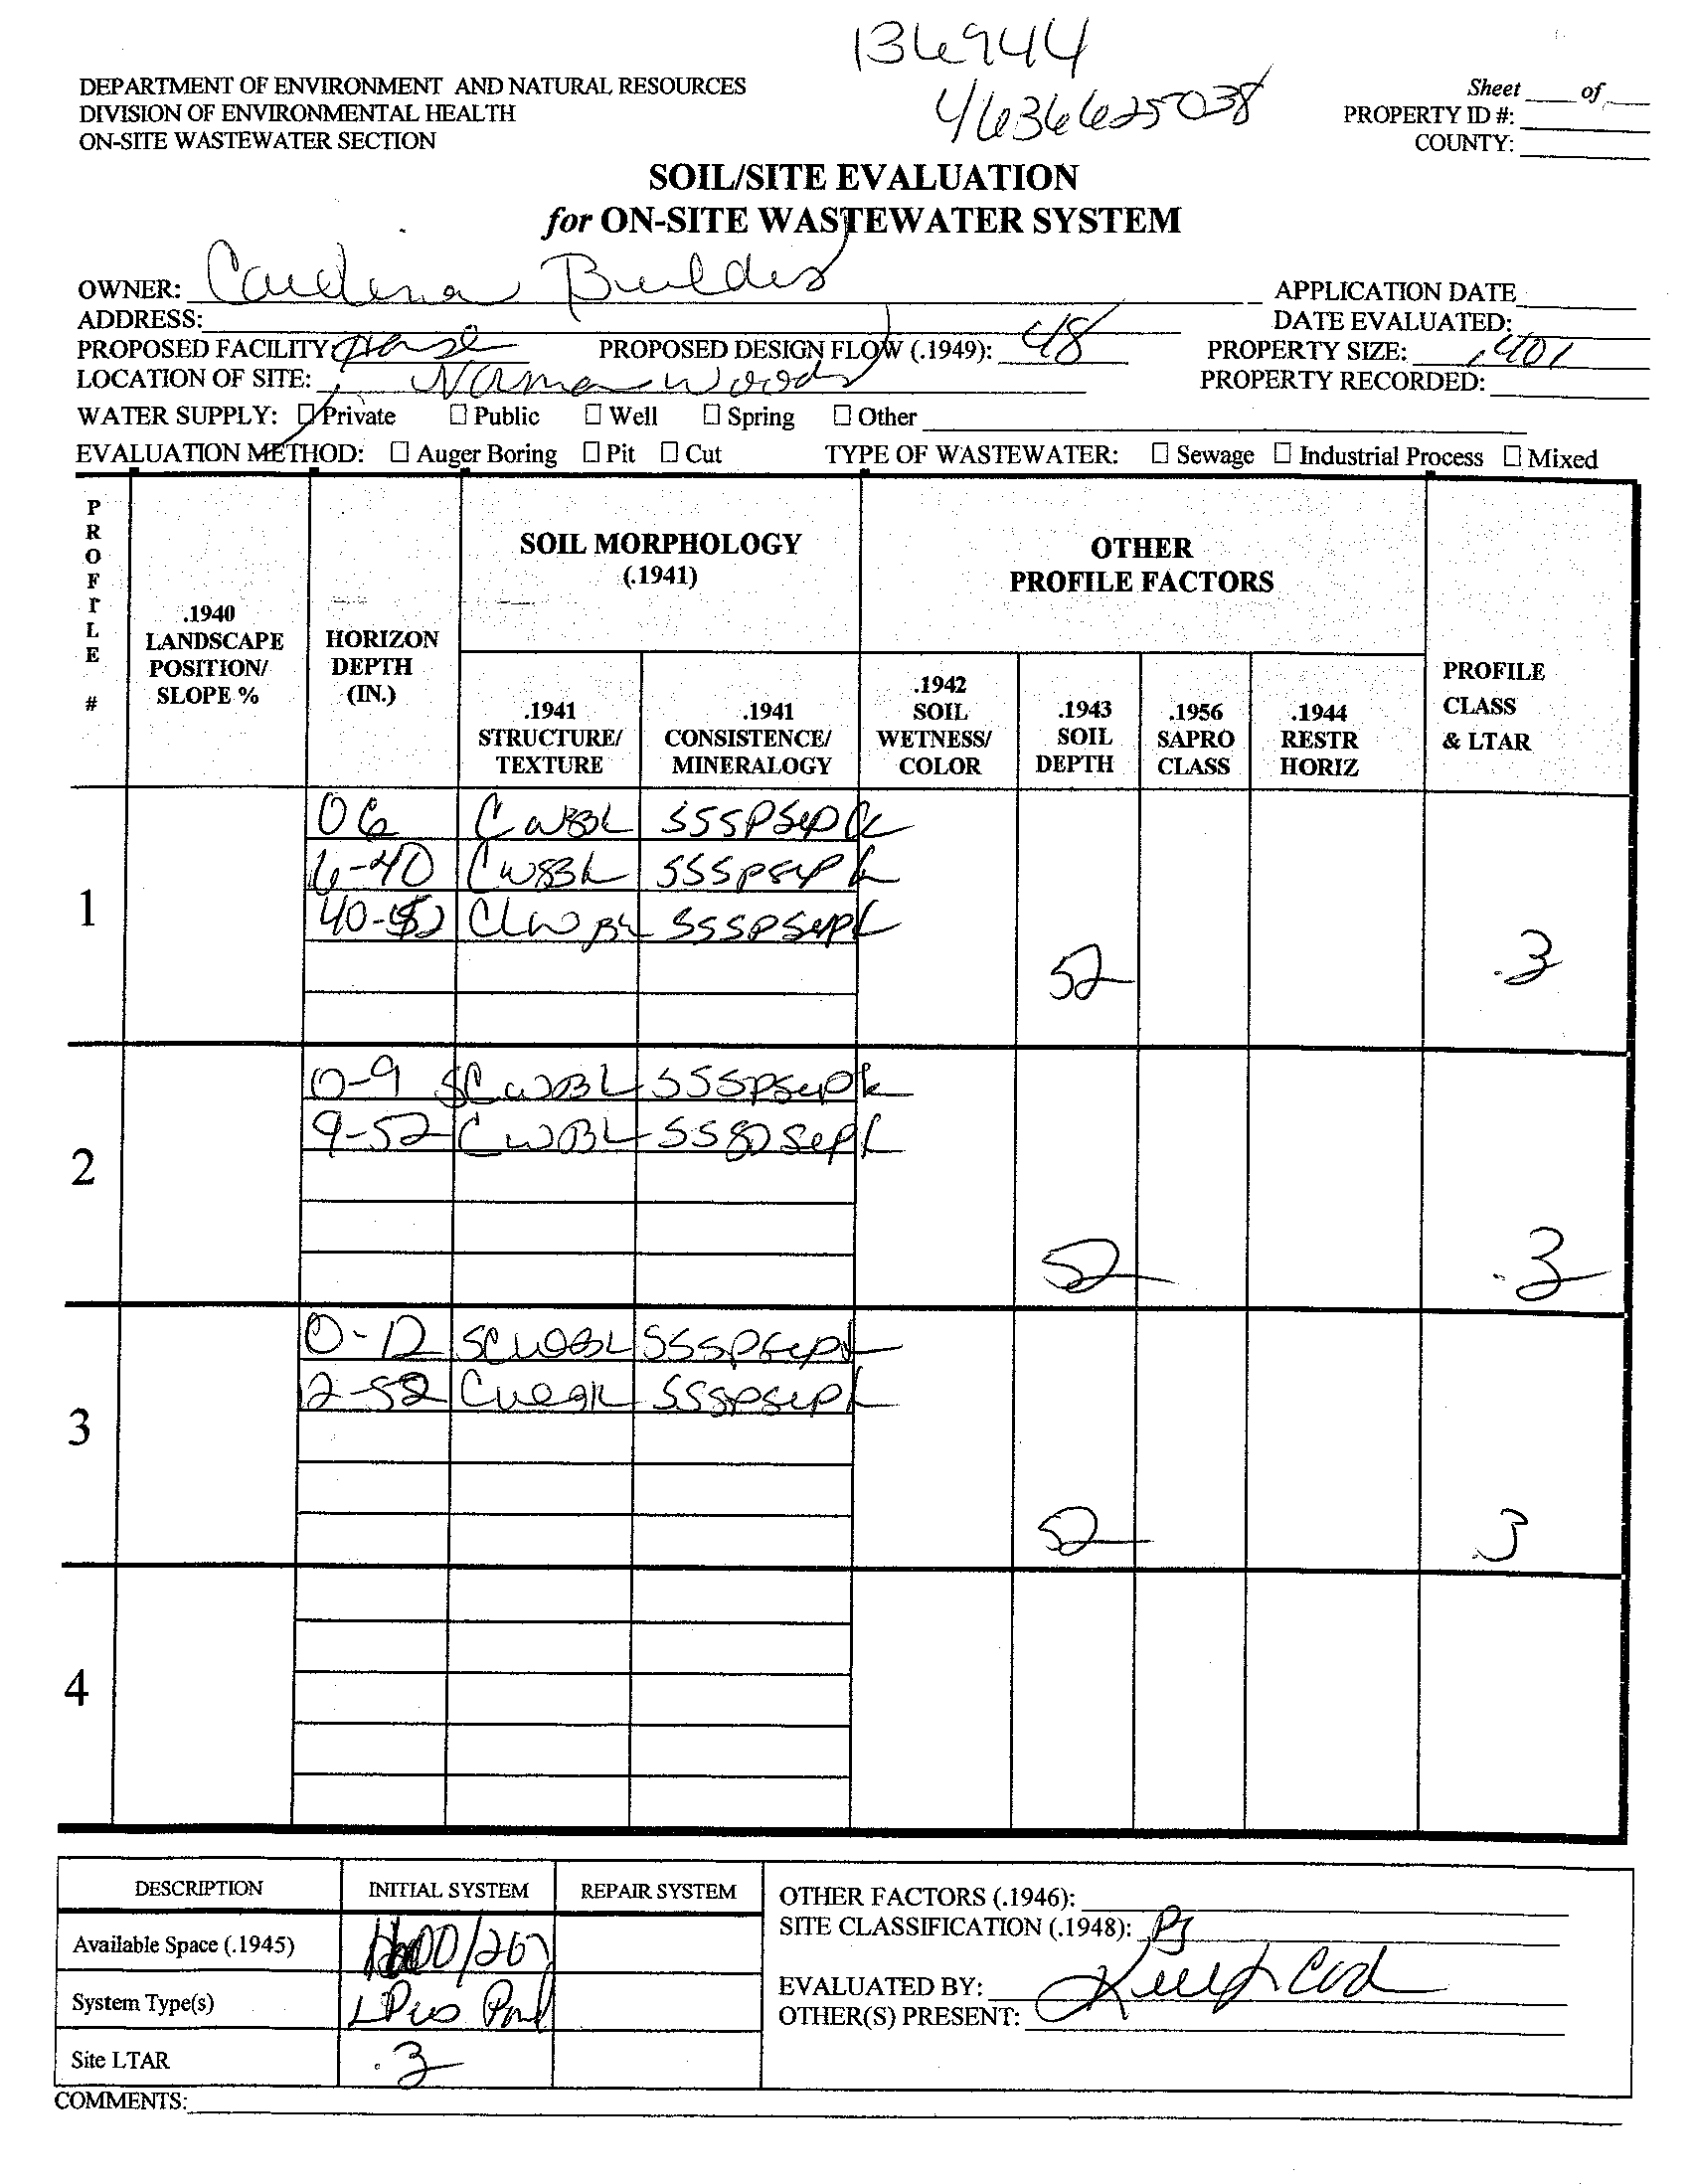 136944
4636625038
DEPARTMENT OF ENVIRONMENT AND NATURAL RESOURCES
DIVISION OF ENVIRONMENTAL HEALTH
ON-SITE WASTEWATER SECTION
Sheet ___ of ___
PROPERTY ID #:
COUNTY:
SOIL/SITE EVALUATION
for ON-SITE WASTEWATER SYSTEM
OWNER:
APPLICATION DATE
ADDRESS:
DATE EVALUATED:
PROPOSED FACILITY House PROPOSED DESIGN FLOW (.1949): 48
PROPERTY SIZE: .401
LOCATION OF SITE: Woods
PROPERTY RECORDED:
WATER SUPPLY: ☐ Private ☐ Public ☐ Well ☐ Spring ☐ Other
EVALUATION METHOD: ☐ Auger Boring ☐ Pit ☐ Cut TYPE OF WASTEWATER: ☐ Sewage ☐ Industrial Process ☐ Mixed
PROFILE #
.1940 LANDSCAPE POSITION/ SLOPE %
HORIZON DEPTH (IN.)
SOIL MORPHOLOGY
(.1941)
.1941 STRUCTURE/ TEXTURE
.1941 CONSISTENCE/ MINERALOGY
OTHER
PROFILE FACTORS
.1942 SOIL WETNESS/ COLOR
.1943 SOIL DEPTH
.1956 SAPRO CLASS
.1944 RESTR HORIZ
PROFILE CLASS & LTAR
1
0 6
6-40
40-52
52 .3
2
0-9 SC WBL
9-52 C WBL
52 .3
3
0-12
12-52
52 .3
4
DESCRIPTION INITIAL SYSTEM REPAIR SYSTEM
Available Space (.1945)
System Type(s)
Site LTAR .3
OTHER FACTORS (.1946):
SITE CLASSIFICATION (.1948): PS
EVALUATED BY:
OTHER(S) PRESENT:
COMMENTS: